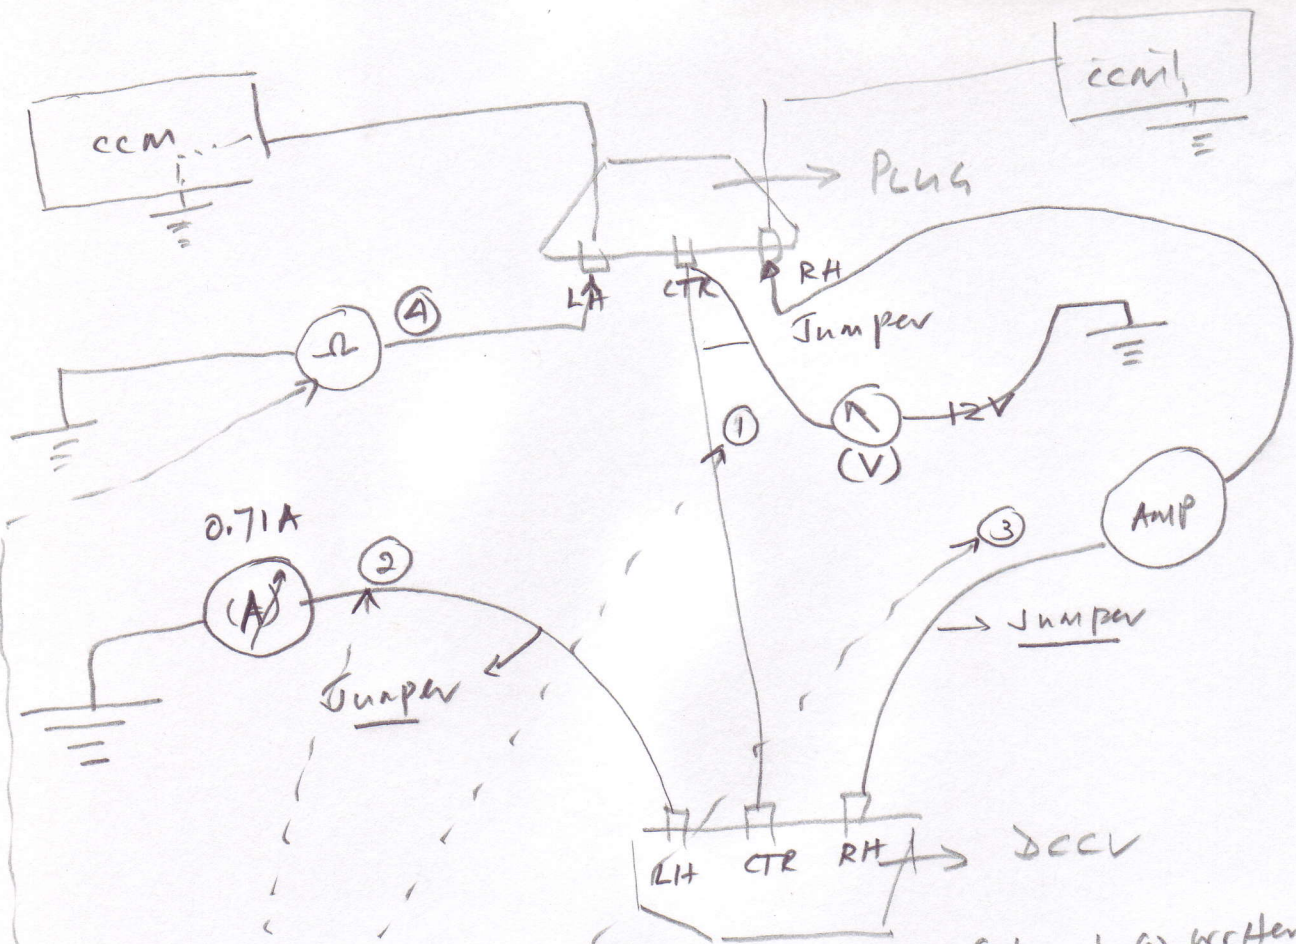 ccm
ccm
PLUG
LH
CTR
RH
Jumper
4
Ω
1
12V
(V)
AMP
0.71A
2
3
(A)
Jumper
Jumper
CTR
RH
DCCV